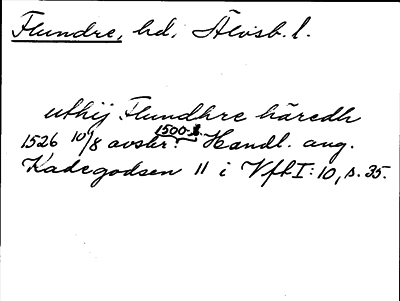 Flundre, hd, Älvsb. l.
uthij Flundhre häredh
1526 10/8 avskr. 1500-t. Handl. ang.
Kadegodsen 11 i Vfl I:10, s. 35.